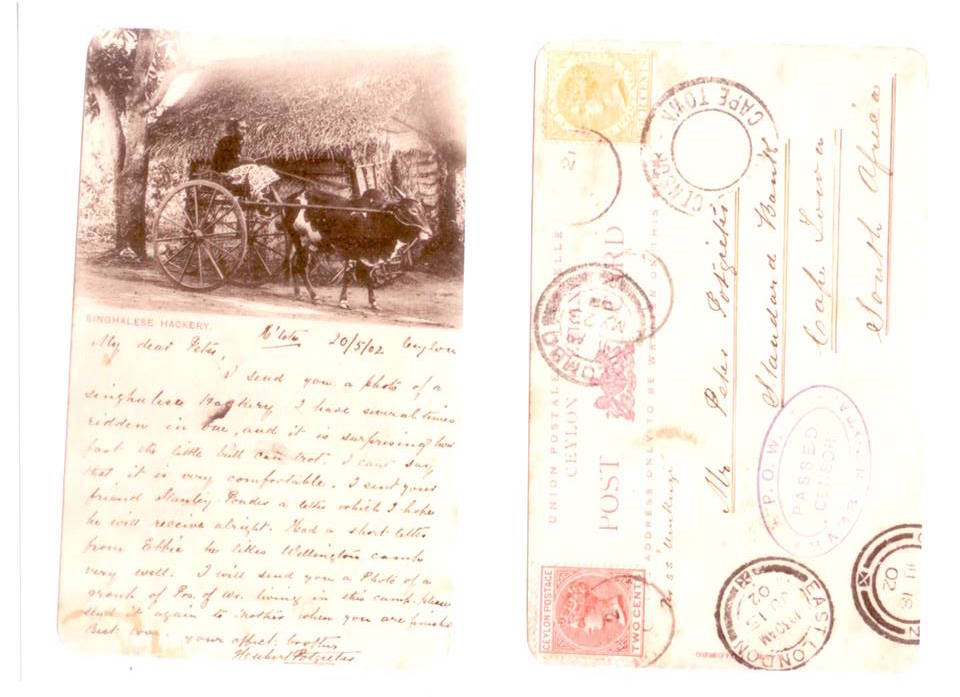 SINGHALESE HACKERY.
20/5/02 Ceylon
My dear Peter,
I send you a photo of a
singhalese Hackery. I have several times
ridden in one, and it is surprising how
fast the little bull can trot. I cant say
that it is very comfortable. I sent your
friend Stanley a letter which I hope
he will receive alright. Had a short letter
from he likes Wellington camp
very well. I will send you a Photo of a
group of Pos. of Wr. living in this camp. please
send it again to Mother when you are finished
Best love. your affect. brother
Potgieter
UNION POSTALE
CEYLON
POST CARD
ADDRESS ONLY TO BE WRITTEN ON THIS
CENSOR CAPE TOWN
21
COLOMBO
Mr Peter Potgieter
Standard Bank
Cape Town
South Africa
P.O.W.
PASSED
CENSOR
CEYLON POSTAGE
TWO CENTS
EAST LONDON
JU 15
02
02